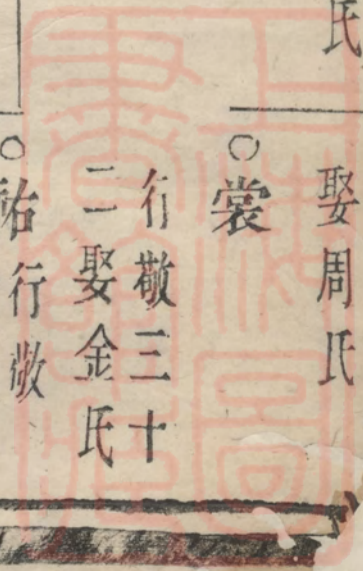 氏
娶周氏
○裳
行敬三十
二娶金氏
○祐行敬